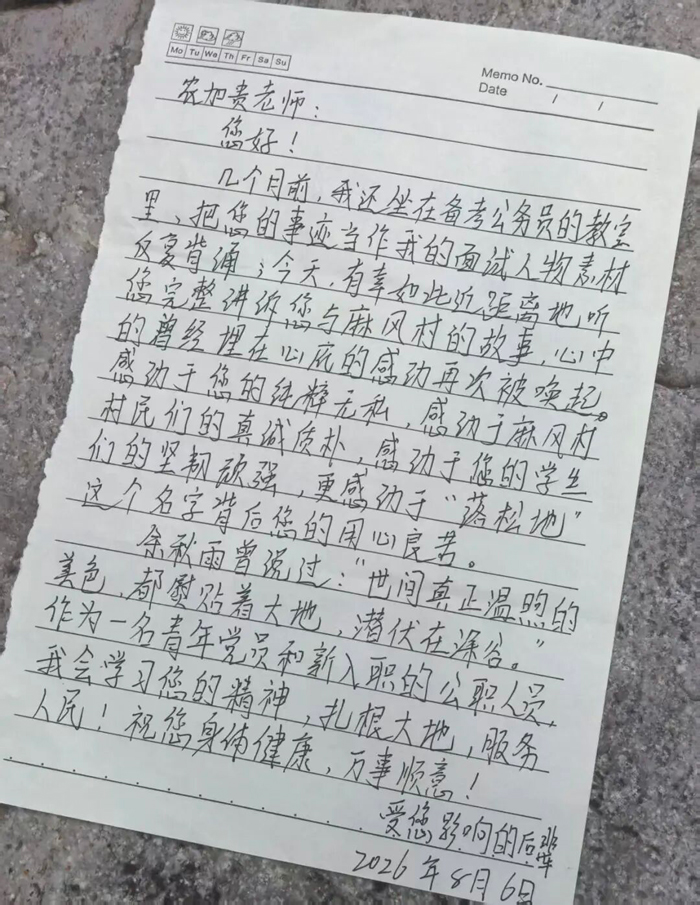 Mo Tu We Th Fr Sa Su
Memo No.
Date / /
农加贵老师：
您好！
几个月前，我还坐在备考公务员的教室
里，把您的事迹当作我的面试人物素材
反复背诵；今天，有幸如此近距离地听
您完整讲诉您与麻风村的故事，心中
的曾经埋在心底的感动再次被唤起。
感动于您的纯粹无私，感动于麻风村
村民们的真诚质朴，感动于您的学生
们的坚韧顽强，更感动于“落松地”
这个名字背后您的用心良苦。
余秋雨曾说过：“世间真正温煦的
美色，都熨贴着大地，潜伏在深谷。”
作为一名青年党员和新入职的公职人员，
我会学习您的精神，扎根大地，服务
人民！祝您身体健康，万事顺意！
受您影响的后辈
2026年8月6日